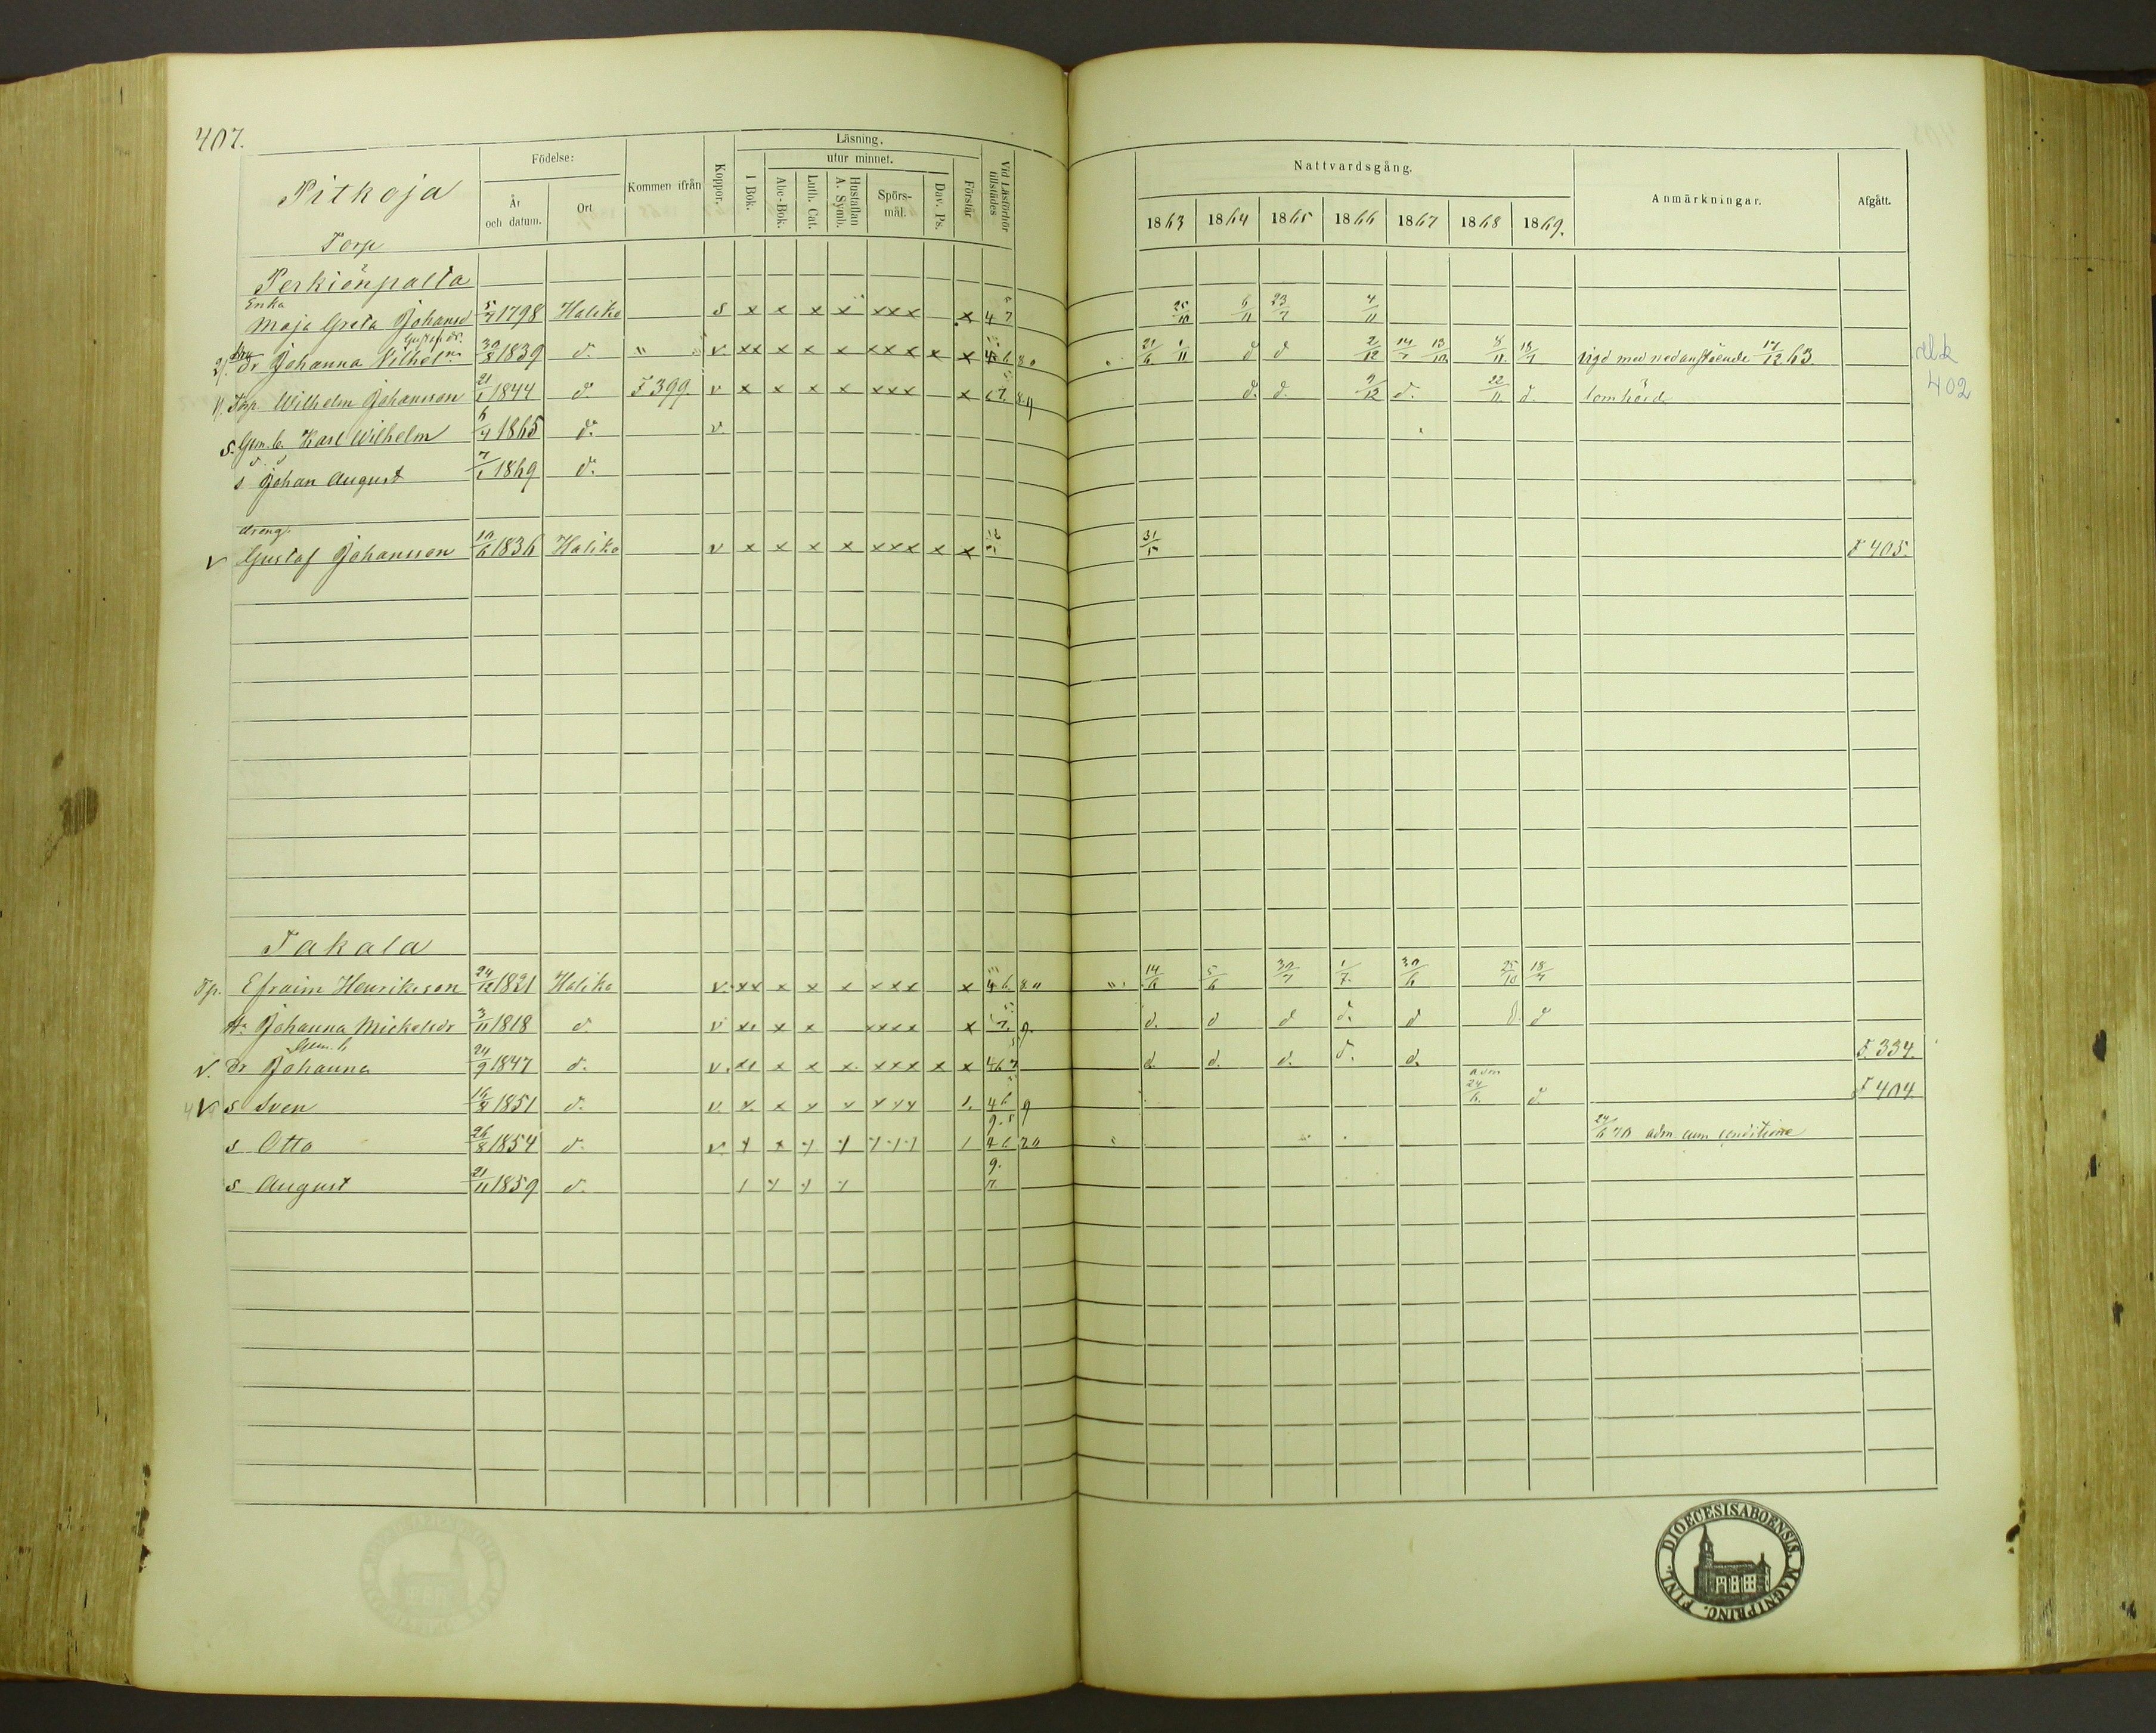 407.
Pitkoja
Torp
Födelse:
År och datum.
Ort
Kommen ifrån
Koppor.
Läsning.
I Bok.
utur minnet.
Abc-Bok.
Luth. Cat.
Hustaflan A. Symb.
Spörs-mål.
Dav. Ps.
Förstår
Vid Läsförhör tillstädes
Nattvardsgång.
1863 1864 1865 1866 1867 1868 1869.
Anmärkningar.
Afgått.
Perkiönpalta
Enka
Maja Greta Johansd 5/7 1798 Haliko s x x x x xxx x 4 7 25/10 6/11 23/7 4/11
Gustafsdr.
dr Johanna Vilhelm. 30/8 1839 d. " v. xx x x x xxx x x 6 80 21/6 1/11 d d 2/12 14/7 13/10 8/11 18/7 vigd med nedanstående 17/12 63.
402
Torp. Wilhelm Johansson 21/1 1844 d. F 399. v x x x x xxx x 67. 8.9 d. d. 9/12 d. 22/11 d. lomhörd
s. Gem. b. Karl Wilhelm 6/4 1865 d. v.
s Johan August 7/1 1869 d.
dreng.
v Gustaf Johansson 10/6 1836 Haliko v x x x x xxx x x 31/5 F 405.
Takala
Tp. Efraim Henriksson 24/12 1821 Haliko v. xx x x x xxx x 46 80 14/6 5/6 30/7 1/7. 30/6 25/10 18/7
H. Johanna Mickelsdr 3/11 1818 d. v xx x x xxxx x 7. 9. d. d d d. d d. d
Gem. b.
v. dr Johanna 24/9 1847 d. v. xx x x x. xxx x x 467 d. d. d. d. d. F. 334.
v s Sven 16/8 1851 d. v. x. x x x xxx 1. 46 9 adm 24/6. d. F 404.
s Otto 26/8 1854 d. v. 46 70 24/6 70 adm. cum conditione
s August 21/11 1859 d. 9.
FINL. DIOECESISABOENSIS. MAGNIPRINC.